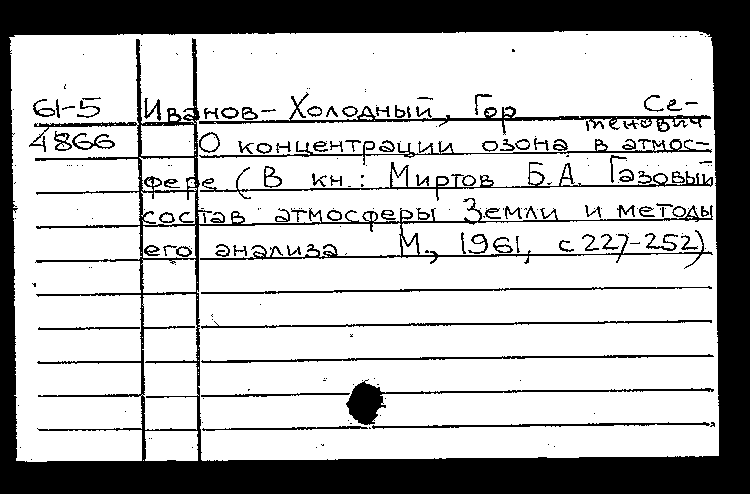 61-5 Иванов-Холодный, Гор Се-
тенович
4866 О концентрации озона в атмос-
фере (В кн.: Миртов Б.А. Газовый
состав атмосферы Земли и методы
его анализа М., 1961, с 227-252)